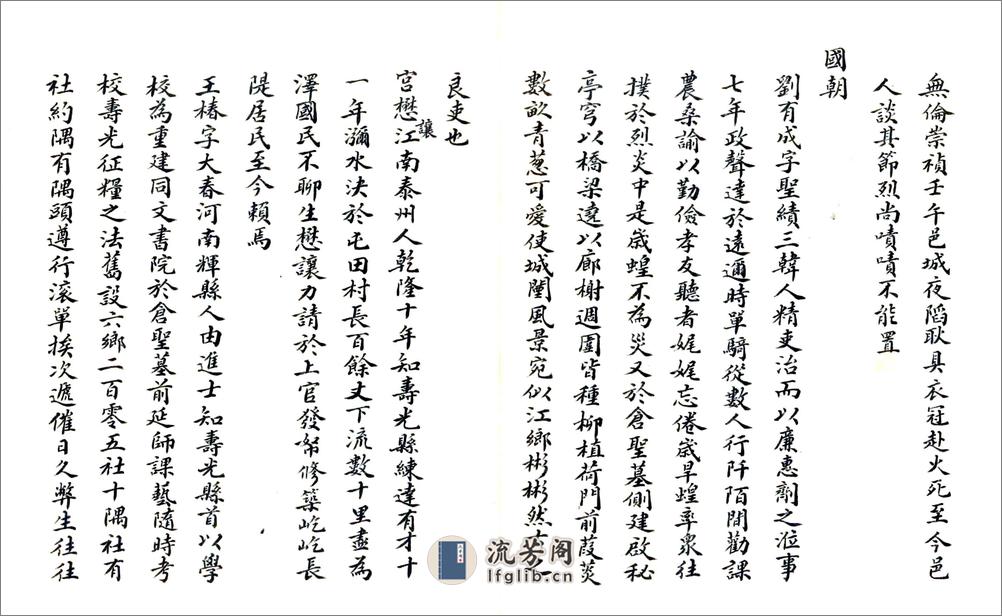 無倫崇禎壬午邑城夜䧟耿具衣冠赴火死至今邑
人談其節烈尚嘖嘖不能置
國朝
劉有成字聖績三韓人精吏治而以廉惠劑之涖事
七年政聲達於遠邇時單騎從數人行阡陌閒勸課
農桑諭以勤儉孝友聽者娓娓忘倦歲旱蝗率衆往
撲於烈炎中是歲蝗不為災又於倉聖墓側建啟秘
亭穹以橋梁遶以廊榭週圍皆種柳植荷門前葭菼
數畝青蔥可愛使城闉風景宛似江鄉彬彬然古之
良吏也
宫懋讓江南泰州人乾隆十年知壽光縣練達有才十
一年瀰水決於屯田村長百餘丈下流數十里盡為
澤國民不聊生懋讓力請於上官發帑修築屹屹長
隄居民至今賴焉
王椿字大春河南輝縣人由進士知壽光縣首以學
校為重建同文書院於倉聖墓前延師課藝隨時考
校壽光征糧之法舊設六鄉二百零五社十隅社有
社約隅有隅頭遵行滚單挨次遞催日久弊生往往
流芳阁
lfglib.cn